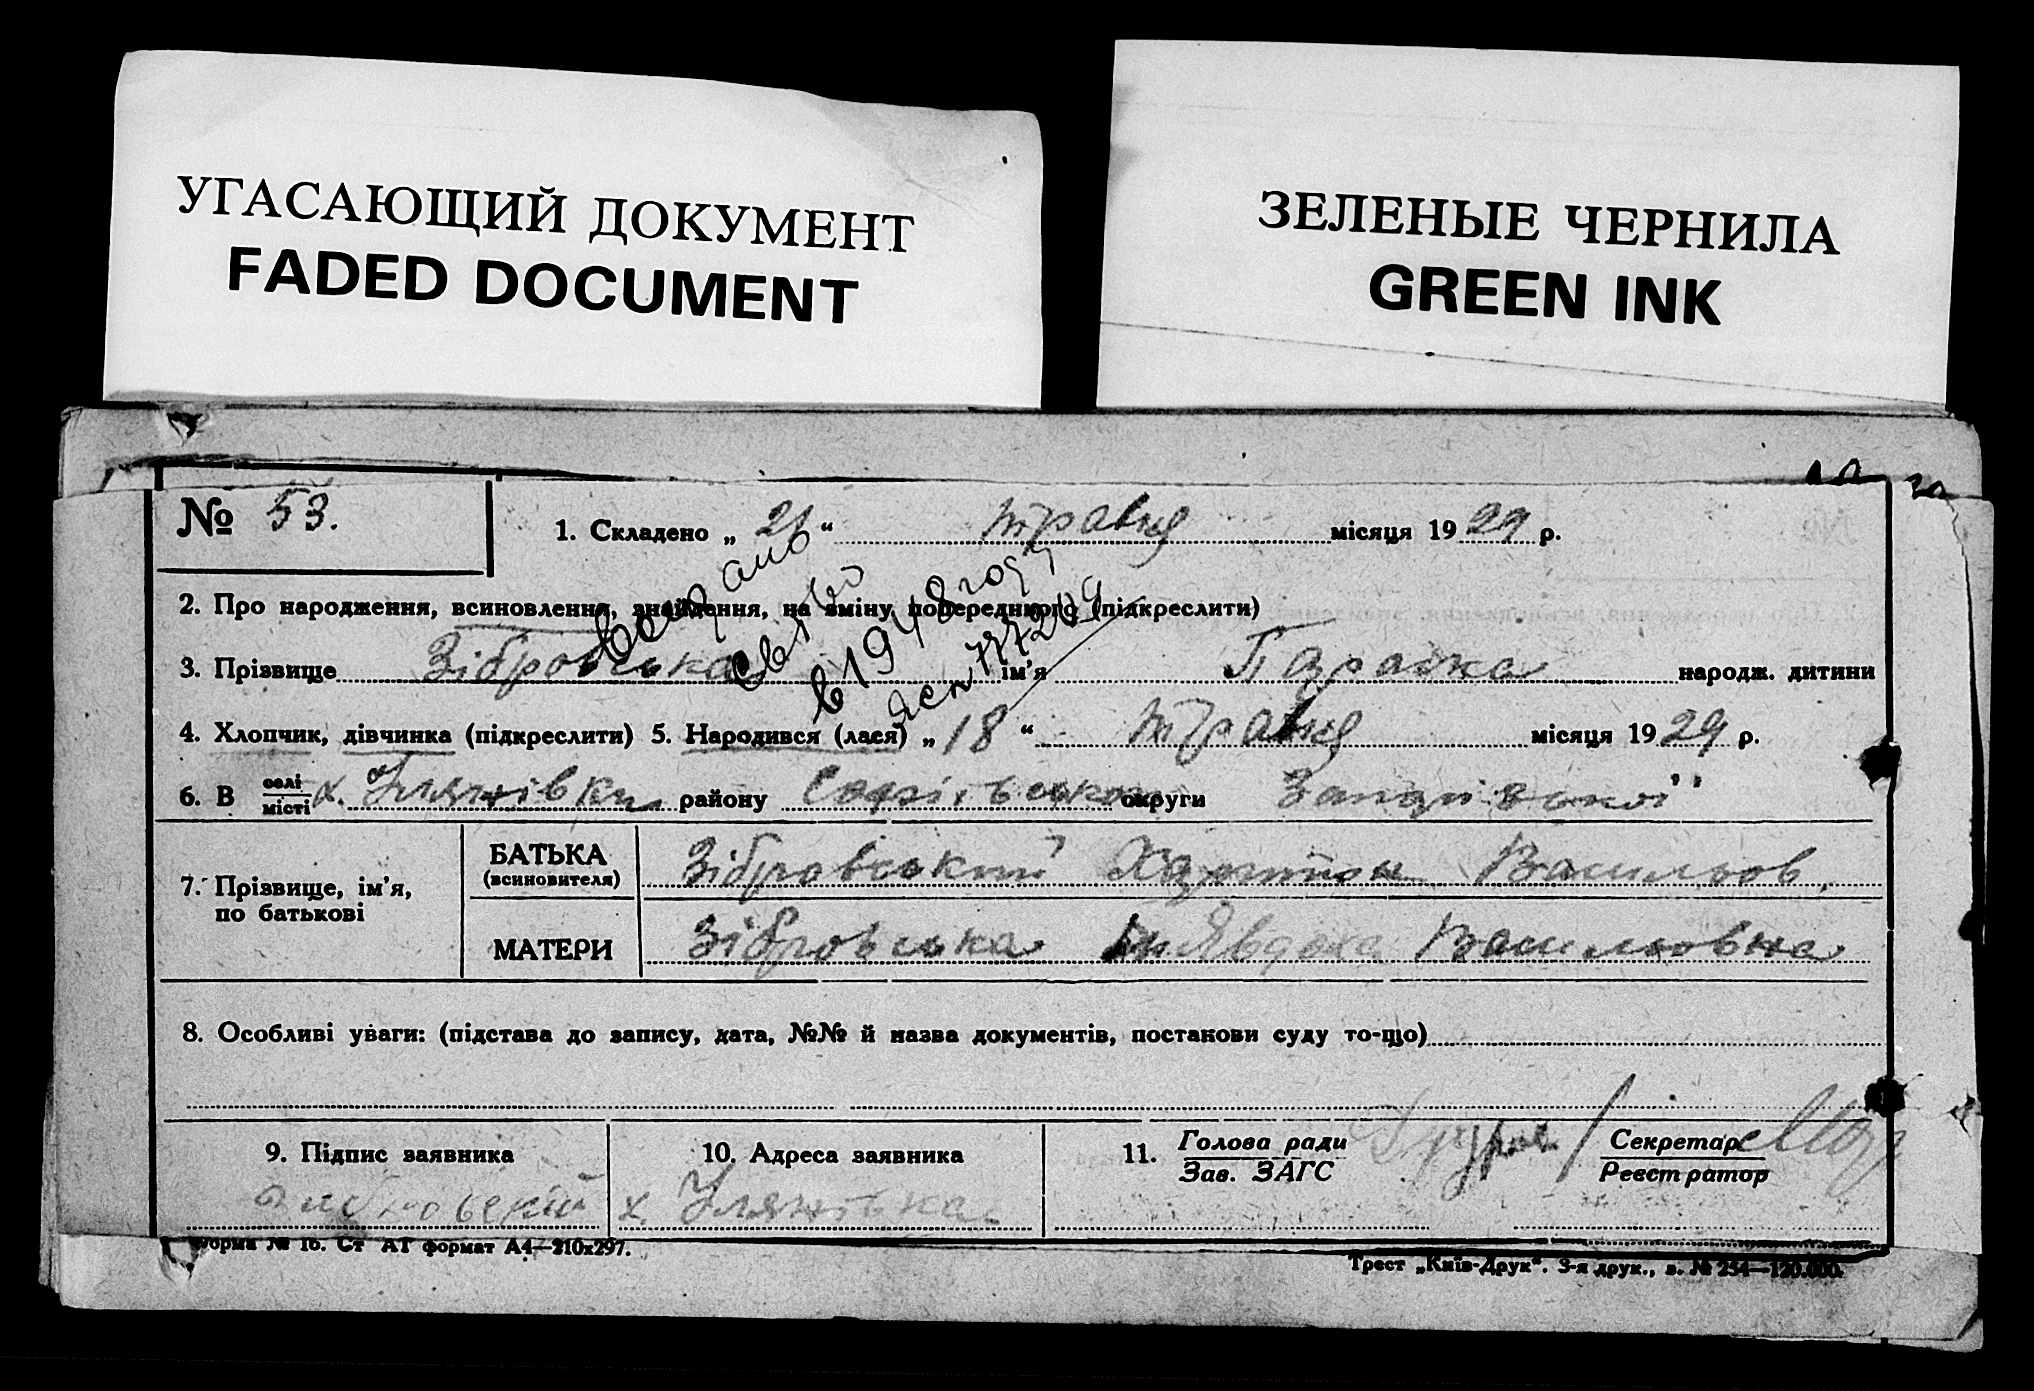 УГАСАЮЩИЙ ДОКУМЕНТ
FADED DOCUMENT
ЗЕЛЕНЫЕ ЧЕРНИЛА
GREEN INK
№ 53.
1. Складено „ 21 “ травня місяця 1929 р.
2. Про народження, всиновлення, знайдення, на зміну попереднього (підкреслити)
в 1948 году
3. Прізвище Зібровська ім'я Параска народж. дитини
4. Хлопчик, дівчинка (підкреслити) 5. Народився (лася) „ 18 “ травня місяця 1929 р.
6. В селі місті х. Улянівки району Софіївського округи
7. Прізвище, ім'я, по батькові
БАТЬКА (всиновителя) Зібровський Харитон Васильов.
МАТЕРИ Зібровська Явдоха Васильовна
8. Особливі уваги: (підстава до запису, дата, №№ й назва документів, постанови суду то-що)
9. Підпис заявника
10. Адреса заявника х. Улянівка
11. Голова ради Зав. ЗАГС
Секретар Реєстратор
Форма № 16. Ст АТ формат А4—210х297.
Трест „Київ-Друк“. 3-я друк., з. № 254—120.000.